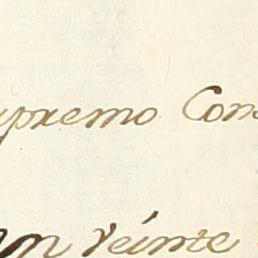 upremo Con
an veinte